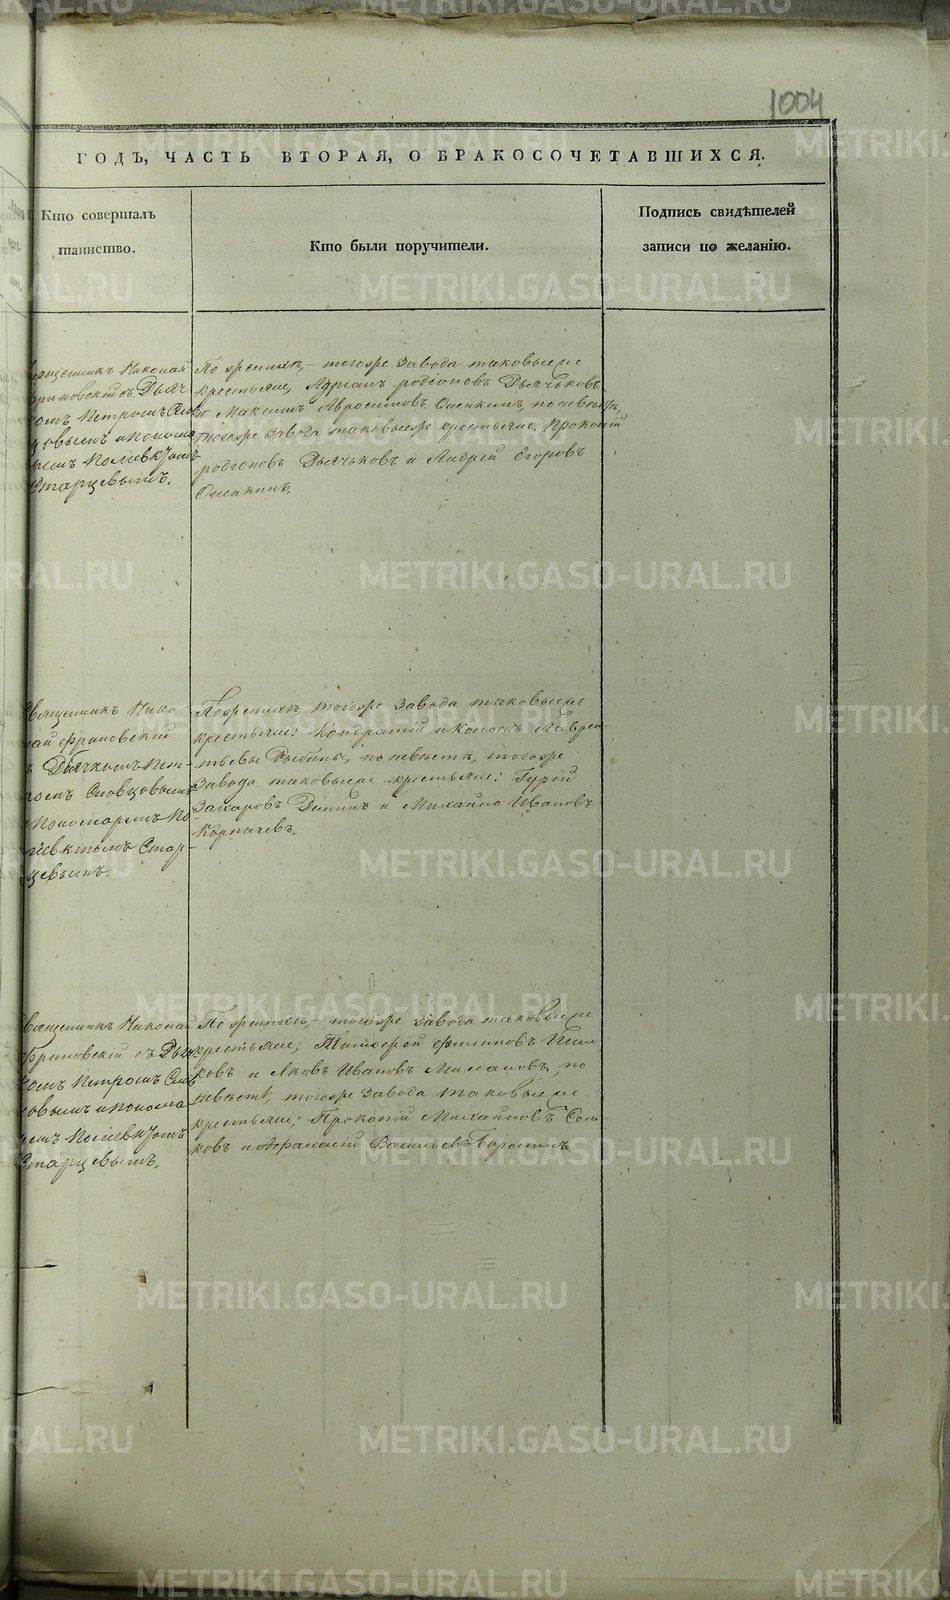 1004
ГОДЪ, ЧАСТЬ ВТОРАЯ, О БРАКОСОЧЕТАВШИХСЯ.
Кто совершалъ
таинство.
Кто были поручители.
Подпись свидѣтелей
записи по желанію.
Николай
съ Дьяч
омъ Петромъ
овымъ и Понома
ремъ Полиевктомъ
Старцевымъ.
По женихѣ, тогоже завода таковыеже
крестьяне, Адріанъ Родіоновъ Дьячковъ
и Максимъ Авросимовъ по невѣстѣ,
тогоже завода таковыеже крестьяне: Прокопій
Родіоновъ Дьячковъ и Андрей Егоровъ
Священникъ Нико
лай
ъ Дьячкомъ Пет-
ромъ Словцовымъ
и Пономаремъ По
лиевктомъ Стар-
цевымъ.
По женихѣ, тогоже завода таковыеже
крестьяне: Кондратій и Лаврен
тьевы по невѣстѣ, тогоже
завода таковыеже крестьяне: Гурій
Захаровъ и Михайло Ивановъ
Священникъ Николай
съ Дьяч
комъ Петромъ Слов
цовымъ и Понома
ремъ Полиевктомъ
Старцевымъ.
По женихѣ, тогоже завода таковыеже
крестьяне; Тимофей Филиповъ
и Яковъ Ивановъ по
невѣстѣ, тогоже завода таковыеже
крестьяне; Прокопій Михайловъ
и Афанасій Васильевъ
METRIKI.GASO-URAL.RU